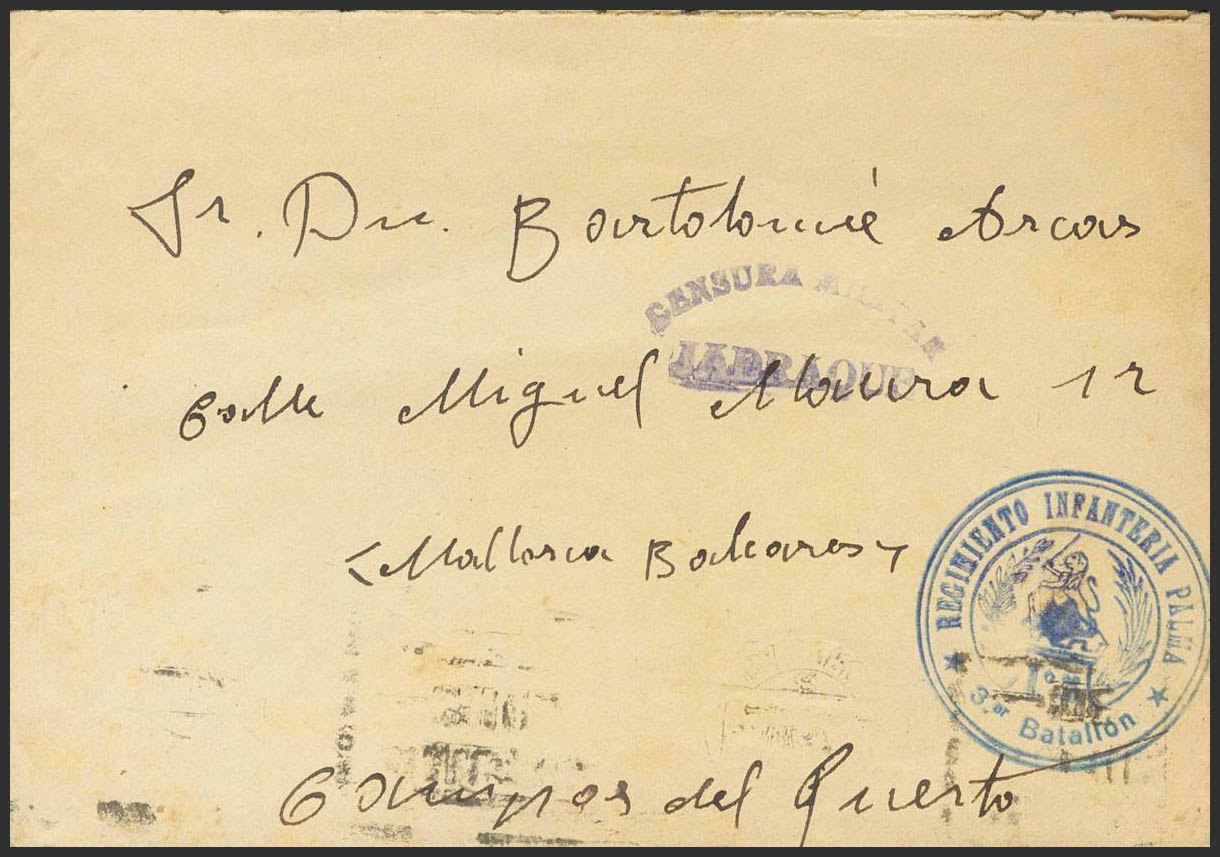 Sr. Dn. Bartolomé Arcas
CENSURA MILITAR
JADRAQUE
Calle Miguel Maura 12
Mallorca Baleares
REGIMIENTO INFANTERIA PALMA
3.er Batallón
Campos del Puerto